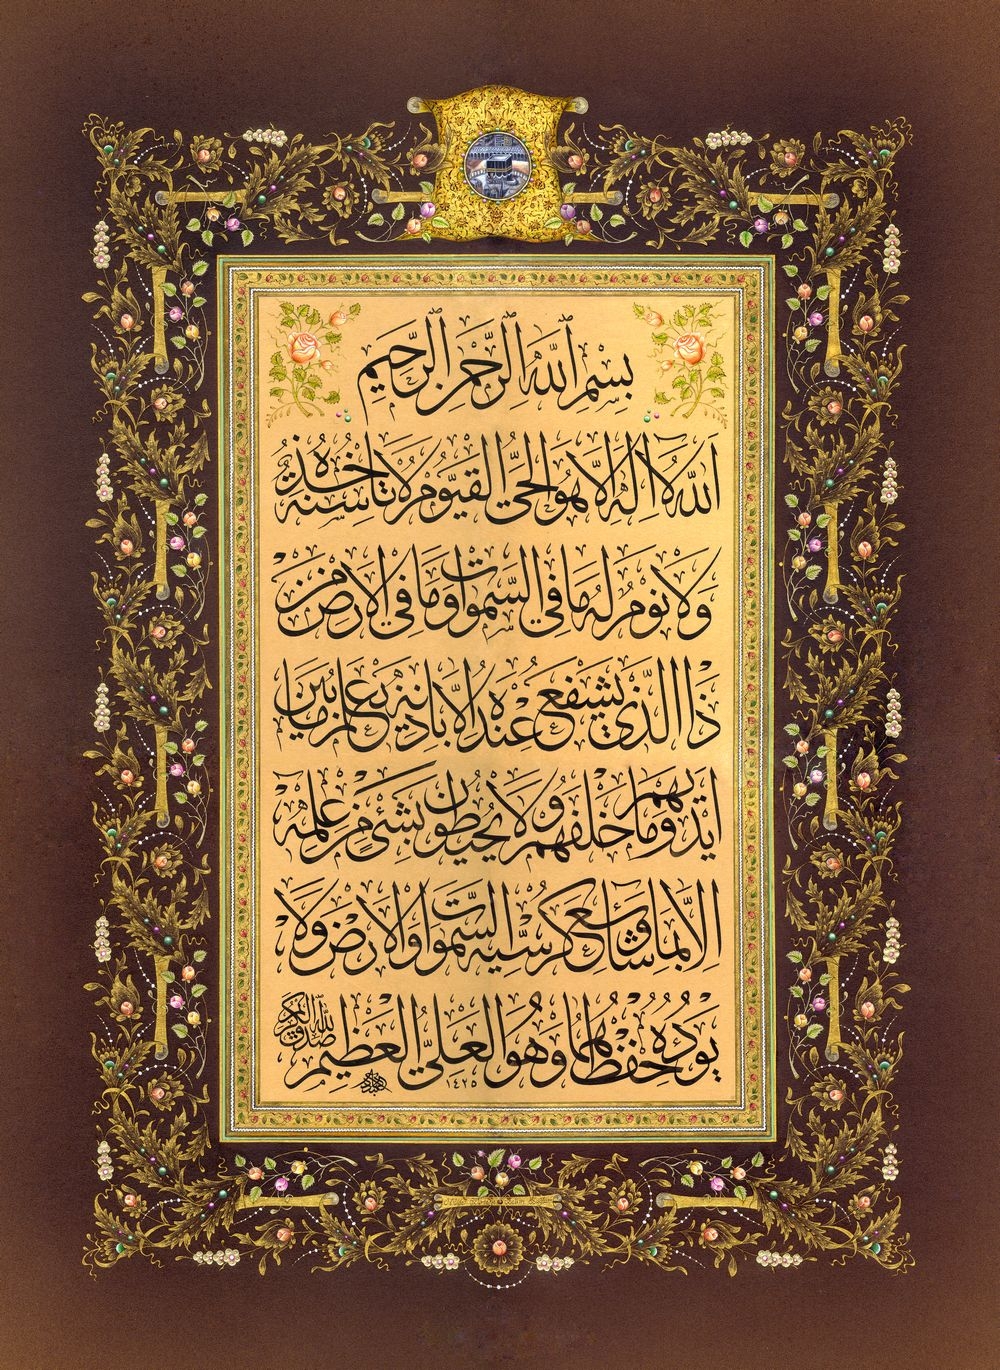 بسم الله الرحمن الرحيم
الله لا اله الا هو الحي القيوم لا تاخذه سنة
ولا نوم له ما في السموات وما في الارض من
ذا الذي يشفع عنده الا باذنه يعلم ما بين
ايديهم وما خلفهم ولا يحيطون بشيء من علمه
الا بما شاء وسع كرسيه السموات والارض ولا
يؤده حفظهما وهو العلي العظيم
صدق الله
١٤٢٥